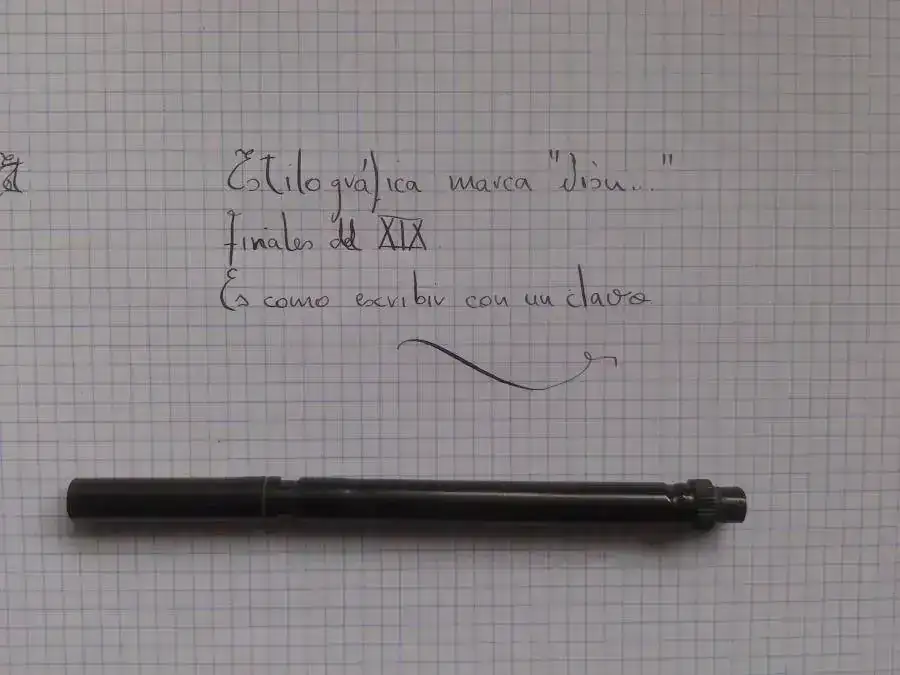 Estilográfica marca "
finales del XIX
Es como escribir con un clavo